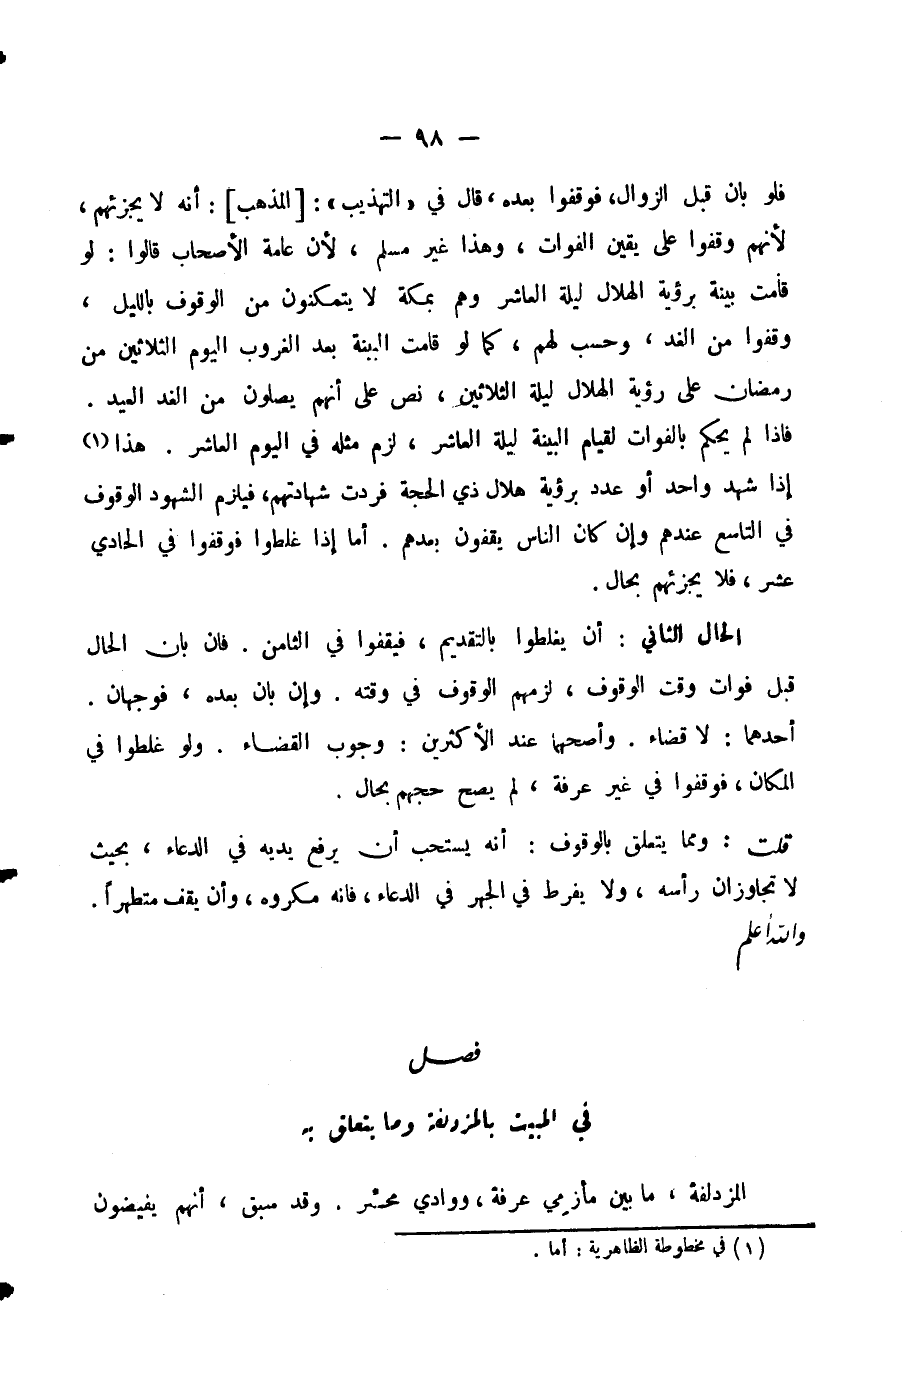 — ٩٨ —
فلو بان قبل الزوال، فوقفوا بعده، قال في «التهذيب»: [المذهب]: أنه لا يجزئهم،
لأنهم وقفوا على يقين الفوات، وهذا غير مسلم، لأن عامة الأصحاب قالوا: لو
قامت بينة برؤية الهلال ليلة العاشر وهم بمكة لا يتمكنون من الوقوف بالليل،
وقفوا من الغد، وحسب لهم، كما لو قامت البينة بعد الغروب اليوم الثلاثين من
رمضان على رؤية الهلال ليلة الثلاثين، نص على أنهم يصلون من الغد العيد.
فاذا لم يحكم بالفوات لقيام البينة ليلة العاشر، لزم مثله في اليوم العاشر. هذا (١)
إذا شهد واحد أو عدد برؤية هلال ذي الحجة فردت شهادتهم، فيلزم الشهود الوقوف
في التاسع عندهم وإن كان الناس يقفون بعدهم. أما إذا غلطوا فوقفوا في الحادي
عشر، فلا يجزئهم بحال.
الحال الثاني: أن يغلطوا بالتقديم، فيقفوا في الثامن. فان بان الحال
قبل فوات وقت الوقوف، لزمهم الوقوف في وقته. وإن بان بعده، فوجهان.
أحدهما: لا قضاء. وأصحهما عند الأكثرين: وجوب القضاء. ولو غلطوا في
المكان، فوقفوا في غير عرفة، لم يصح حجهم بحال.
قلت: ومما يتعلق بالوقوف: أنه يستحب أن يرفع يديه في الدعاء، بحيث
لا تجاوزان رأسه، ولا يفرط في الجهر في الدعاء، فانه مكروه، وأن يقف متطهراً.
والله أعلم
فصل
في المبيت بالمزدلفة وما يتعلق به
المزدلفة، ما بين مأزمي عرفة، ووادي محسّر. وقد سبق، أنهم يفيضون
(١) في مخطوطة الظاهرية: أما.